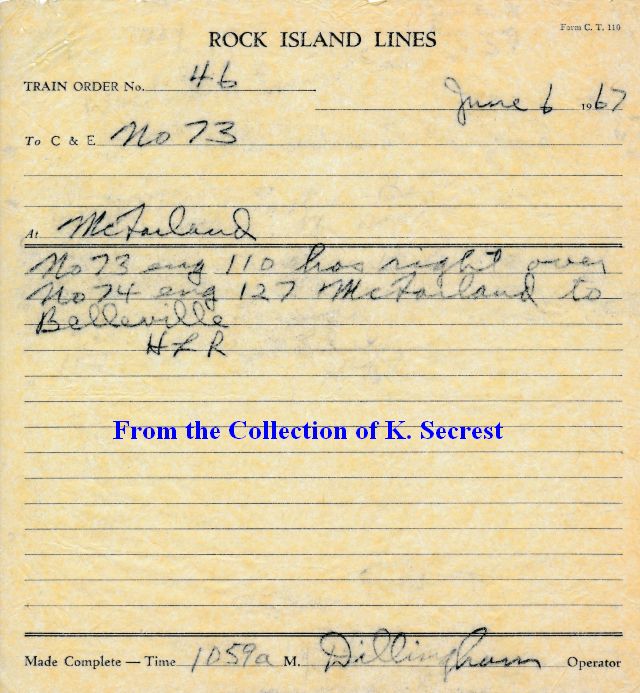 Form C. T. 110
ROCK ISLAND LINES
TRAIN ORDER No. 46
June 6 1967
To C & E No 73
At McFarland
No 73 eng 110 has right over
No 74 eng 127 McFarland to
Belleville
HLR
From the Collection of K. Secrest
Made Complete — Time 1059a M. Dillingham Operator